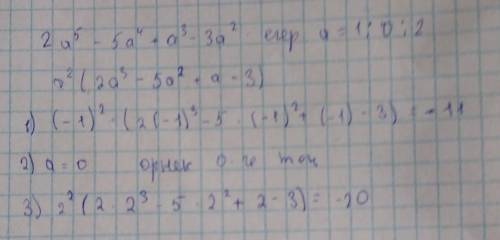 2a⁵ - 5a⁴ + a³ - 3a² егер a = 1; 0; 2
a² (2a³ - 5a² + a - 3)
1) (-1)² · (2(-1)³ - 5 · (-1)² + (-1) - 3) = -11
2) a = 0 орнек 0 ге тең
3) 2² (2 · 2³ - 5 · 2² + 2 - 3) = -20